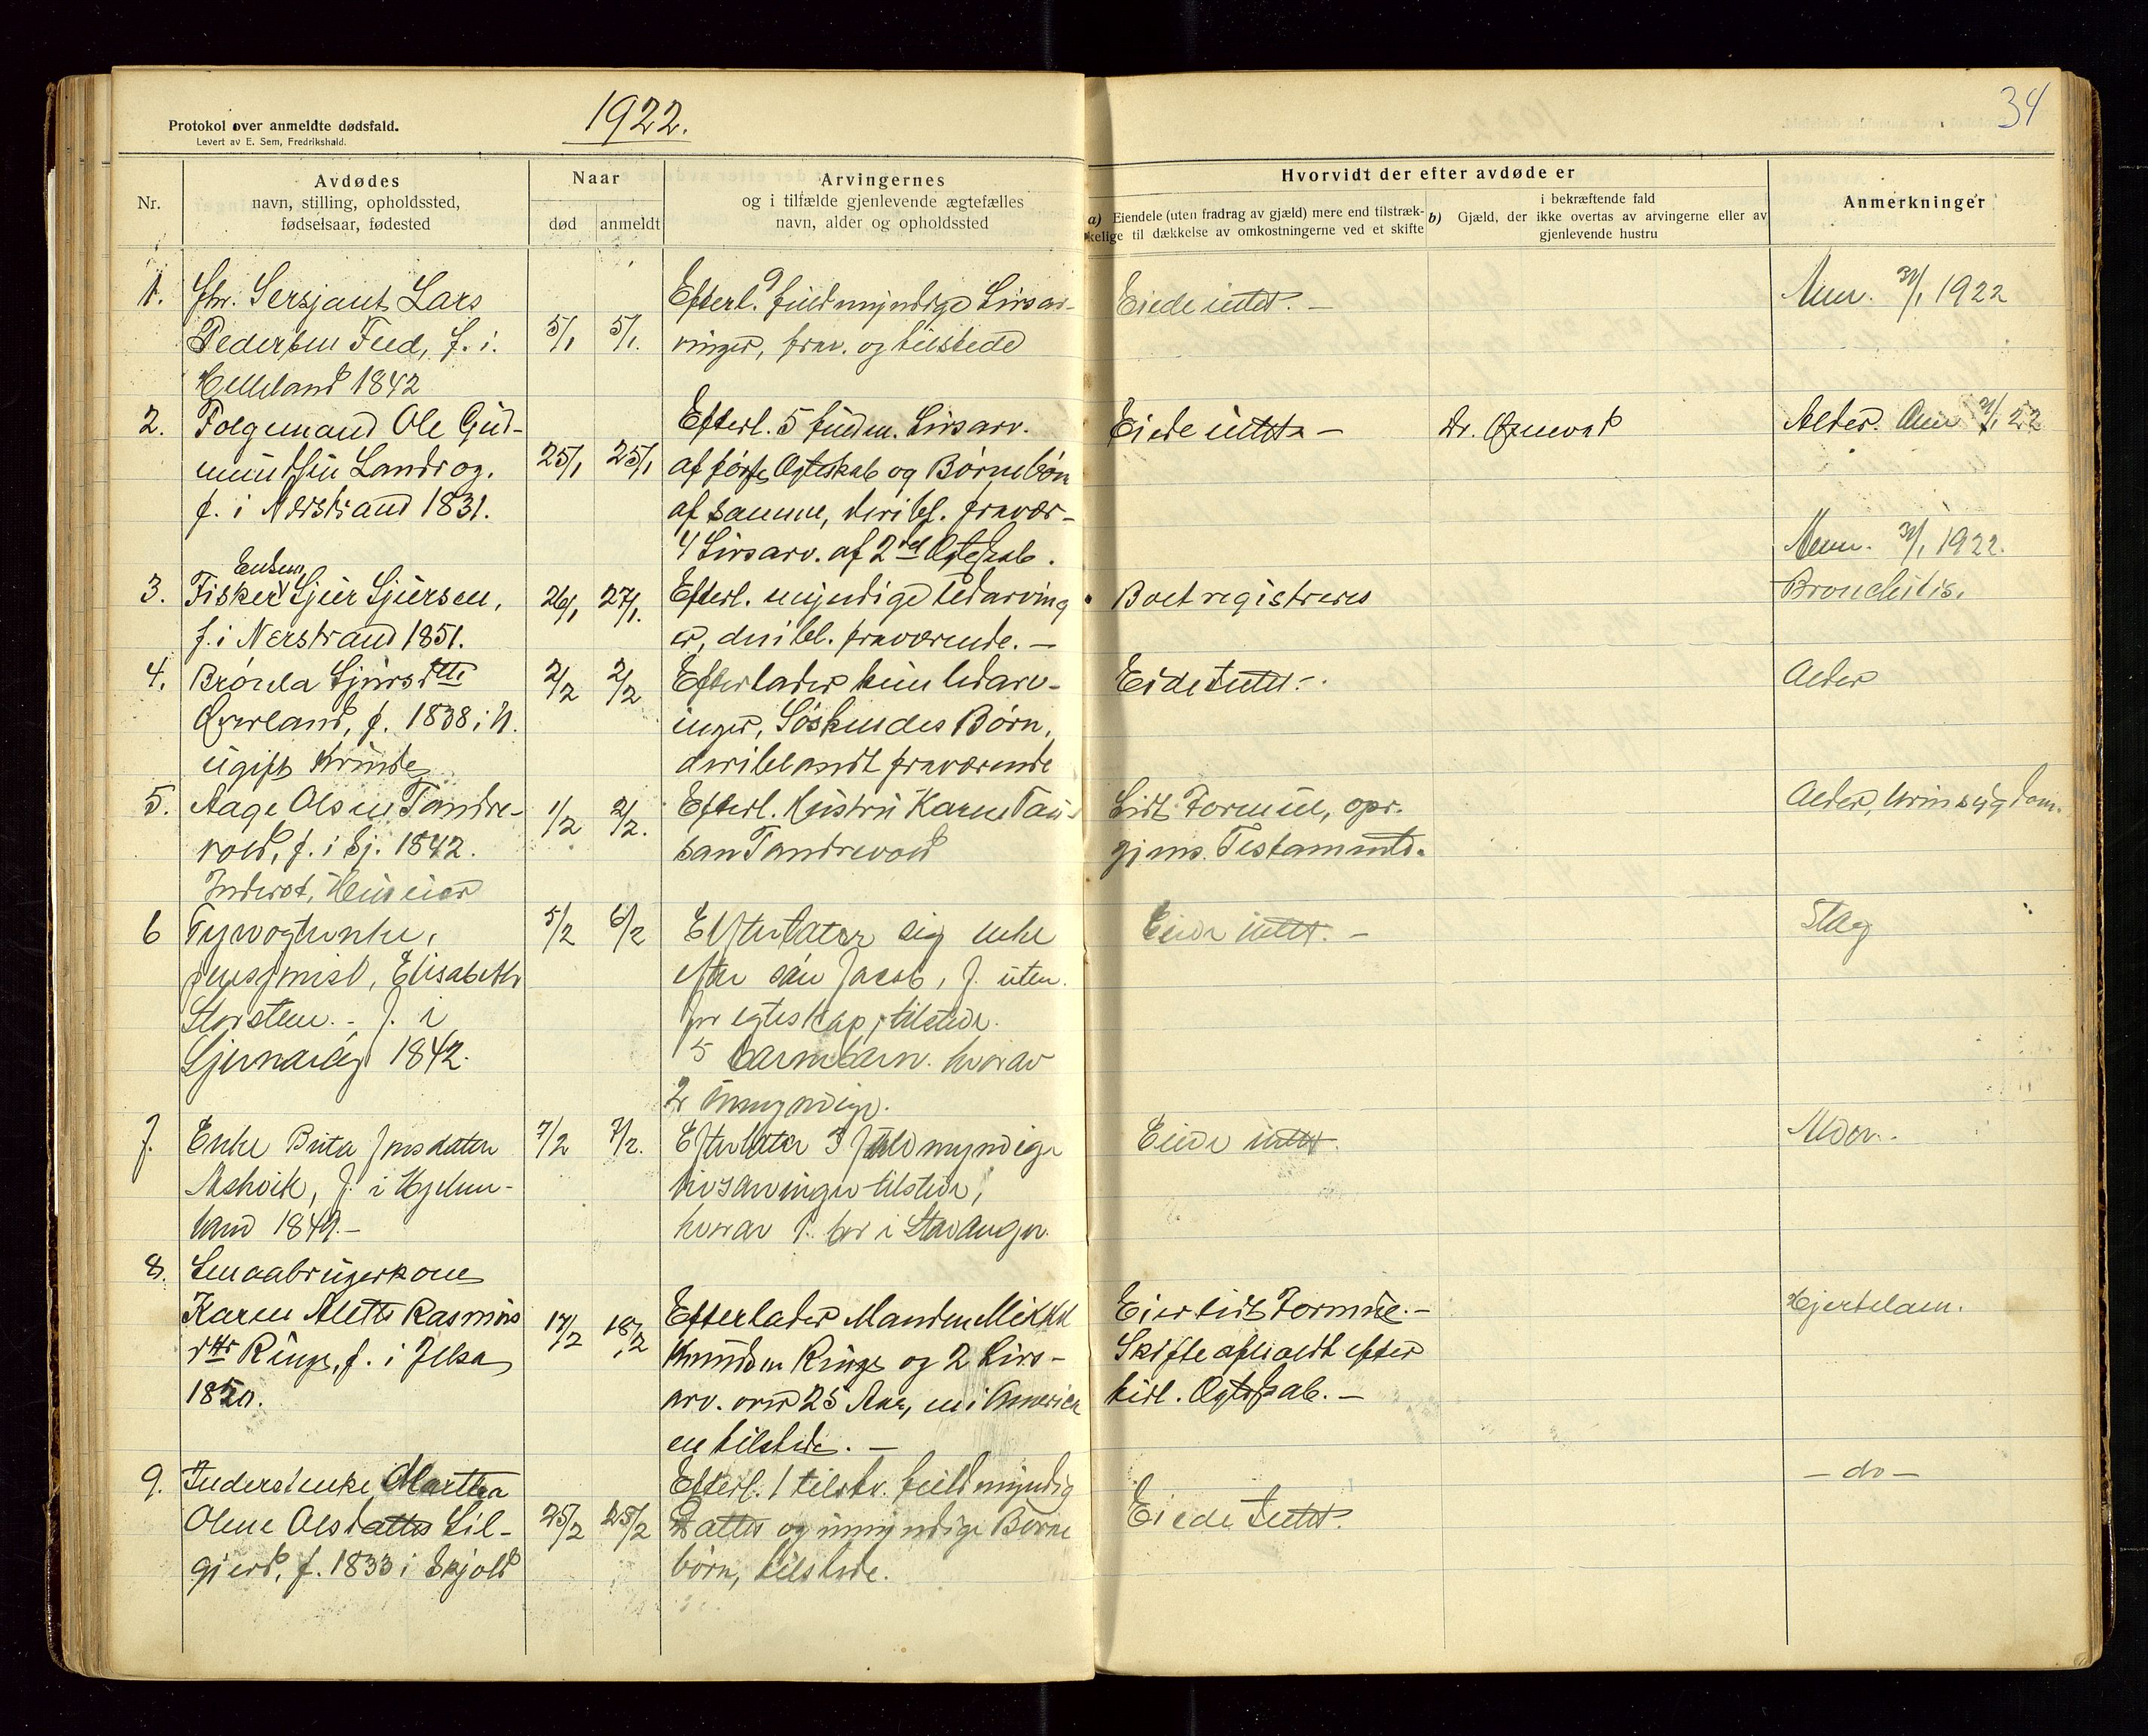 1922.
34
Protokol over anmeldte dødsfald.
Levert av E. Sem, Fredrikshald.
Nr.
Avdødes
navn, stilling, opholdssted,
fødselsaar, fødested
Naar
død
anmeldt
Arvingernes
og i tilfælde gjenlevende ægtefælles
navn, alder og opholdssted
Hvorvidt der efter avdøde er
a) Eiendele (uten fradrag av gjæld) mere end tilstræk-
kelige til dækkelse av omkostningerne ved et skifte
i bekræftende fald
b) Gjæld, der ikke overtas av arvingerne eller av
gjenlevende hustru
Anmerkninger
1. fhv. Sersjant Lars
Pedersen Feed, f. i.
Helleland 1842
5/1 5/1.
Efterl. 9 fuldmyndige Livsar-
vinger, frav. og tilstede
Eiede intet. -
31/1 1922
2. Folgemand Ole Gud-
mundsen Landrog.
f. i Nerstrand 1831.
25/1 25/1
Efterl. 5 fuldm. Livsarv.
af første Ægteskab og Børnebørn
af samme, deribl. fravær-
4 Livsarv. af 2det Ægteskab.
Eiede intet -
Alder.
31/1 22
31/1 1922.
3. Fisker Enkem. Sjur Sjursen,
f. i Nerstrand 1851.
26/1 27/1.
Efterl. myndige Udarving
er, deribl. fraværende. -
Boet registreres
Bronchitis.
4. Brónla Sjursdtr
Qverland, f. 1838 i N.
ugift Kvinde
2/2 2/2
Efterlader kun Udarv-
inger, Søskendes Børn,
deriblandt fraværende
Eide Intet. -
Alder
5. Aage Olsen Tandre-
vold, f. i Sj. 1842.
Inderst, Huseier
1/2 2/2.
Efterl. Hustru Karen
Tandrevold
Lidt Formue, opr.
gjens. Testament.
Alder, Urinsygdom.
6
pensjonist, Elisabeth
Storsteen. - f. i
Sjernarøy 1842.
5/2 6/2
Efterlater sig enke
efter søn Jacob, f. uten-
for egteskap, tilstede.
5 barnebarn. hvorav
2 umyndige.
Eiede intet. -
Slag
7. Enke Brita Jonsdatter
Askvik, f. i Hjelme-
land 1849. -
7/2 7/2.
Efterlater 3 fuldmyndige
livsarvinger tilstede,
hvorav 1. bor i Stavanger.
Eiede intet.
Alder.
8. Smaabrugerkone
Karen Alette Rasmus
dtr Ringe, f. i Jelsa
1850.
17/2 18/2
Efterlader Manden Mikkel
Knudsen Ringe og 2 Livs-
arv. over 25 Aar, en i America
en tilstede. -
Eier lidt Formue. -
Skifte afholdt efter
tidl. Ægteskab. -
Hjertelam.
9. Inderstenke Martha
Oline Olsdatter Lil-
gierd, f. 1833 i Skjold
25/2 25/2
Efterl. 1 tilstv. fuldmyndig
Datter og umyndige Børne
børn, tilstede.
Eiede Intet.
- do -